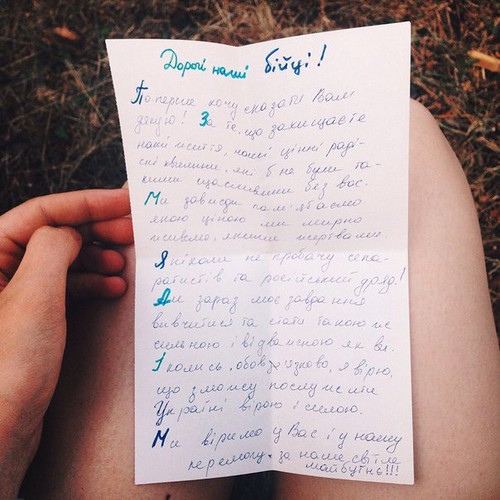 Дорогі наші бійці!
По перше хочу сказати Вам
дякую! За те, що захищаєте
наші життя, наші цінні раді-
сні хвилини, які б не були та-
кими щасливими без вас.
Ми завжди пам'ятаємо
якою ціною ми мирно
живемо, якими жертвами.
Я ніколи не пробачу сепа-
ратистів та російський уряд!
Але зараз моє завдання
вивчитися та стати такою ж
сильною і відважною як ви.
І колись, обов'язково, я вірю,
що зможу послужити
Україні вірою і силою.
Ми віримо у Вас і у нашу
перемогу за наше світле
майбутнє!!!